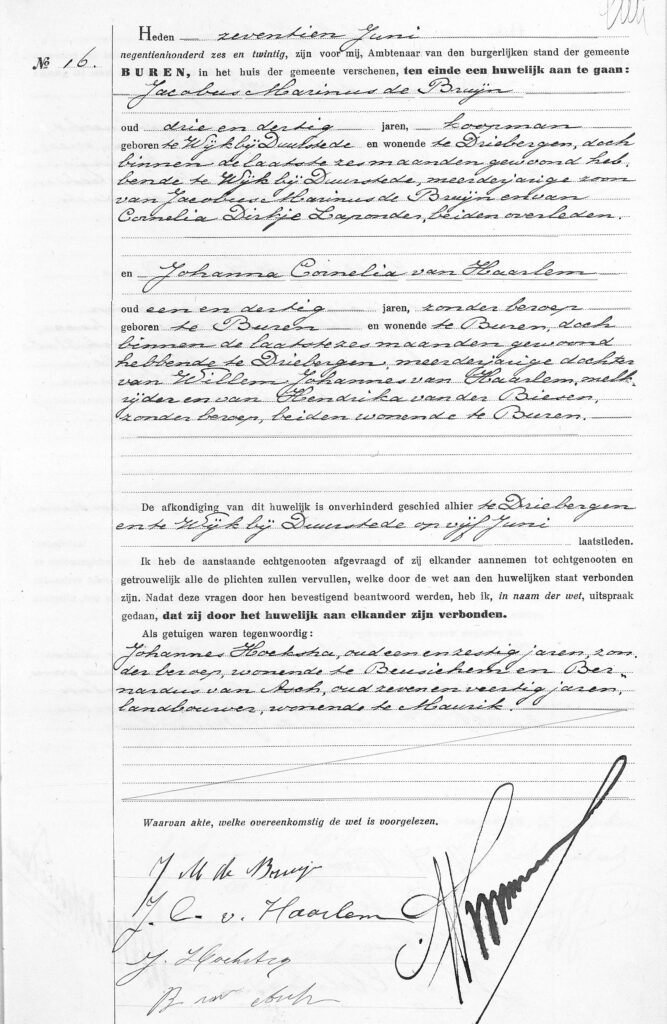 Heden zeventien Juni
negentienhonderd zes en twintig, zijn voor mij, Ambtenaar van den burgerlijken stand der gemeente
№ 16.
BUREN, in het huis der gemeente verschenen, ten einde een huwelijk aan te gaan:
Jacobus Marinus de Bruijn
oud drie en dertig jaren, koopman
geboren te Wijk bij Duurstede en wonende te Driebergen, doch
binnen de laatste zes maanden gewoond heb-
bende te Wijk bij Duurstede, meerderjarige zoon
van Jacobus Marinus de Bruijn en van
Cornelia Dirkje Laponder, beiden overleden.
en Johanna Cornelia van Haarlem
oud een en dertig jaren, zonder beroep
geboren te Buren en wonende te Buren, doch
binnen de laatste zes maanden gewoond
hebbende te Driebergen, meerderjarige dochter
van Willem Johannes van Haarlem, melk-
rijder en van Hendrika van der Biesen,
zonder beroep, beiden wonende te Buren.
De afkondiging van dit huwelijk is onverhinderd geschied alhier te Driebergen
en te Wijk bij Duurstede op vijf Juni
laatstleden.
Ik heb de aanstaande echtgenooten afgevraagd of zij elkander aannemen tot echtgenooten en
getrouwelijk alle de plichten zullen vervullen, welke door de wet aan den huwelijken staat verbonden
zijn. Nadat deze vragen door hen bevestigend beantwoord werden, heb ik, in naam der wet, uitspraak
gedaan, dat zij door het huwelijk aan elkander zijn verbonden.
Als getuigen waren tegenwoordig:
Johannes Hoekstra, oud een en zestig jaren, zon-
der beroep, wonende te Beusichem en Ber-
nardus van Asch, oud zeven en veertig jaren,
landbouwer, wonende te Maurik.
Waarvan akte, welke overeenkomstig de wet is voorgelezen.
J M de Bruijn
J. C. v. Haarlem
J. Hoekstra
B van Asch